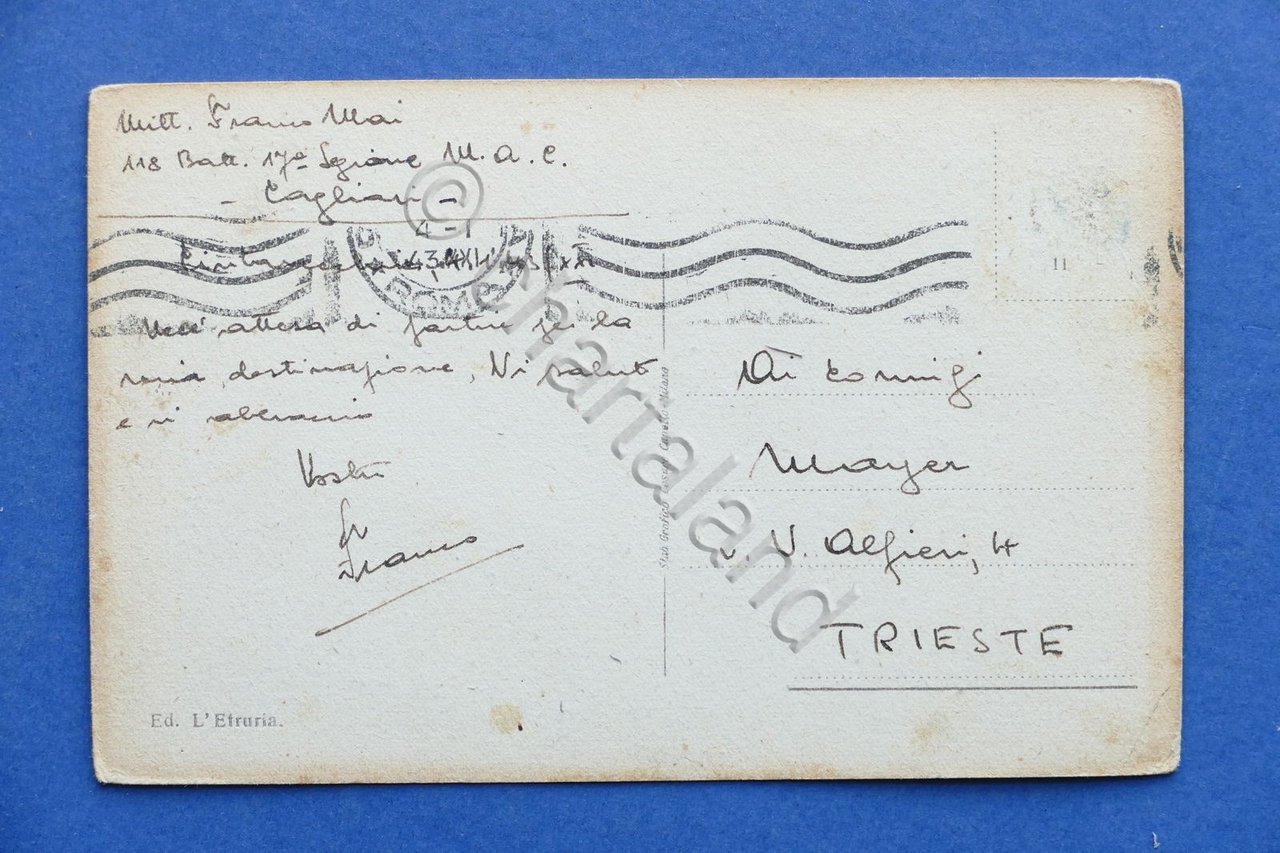 Mitt. Franco Mai
118 Batt. 17ª Legione M.A.C.
- Cagliari -
4 - I
43 XXI
ROMA
Nell' attesa di partire per la
mia destinazione, Vi saluto
e vi abbraccio
Vostro
Franco
Ed. L'Etruria.
Stab. Grafico Cesare Capello - Milano
11
Ai coniugi
Mayer
V. Alfieri, 4
TRIESTE
© Chartaland